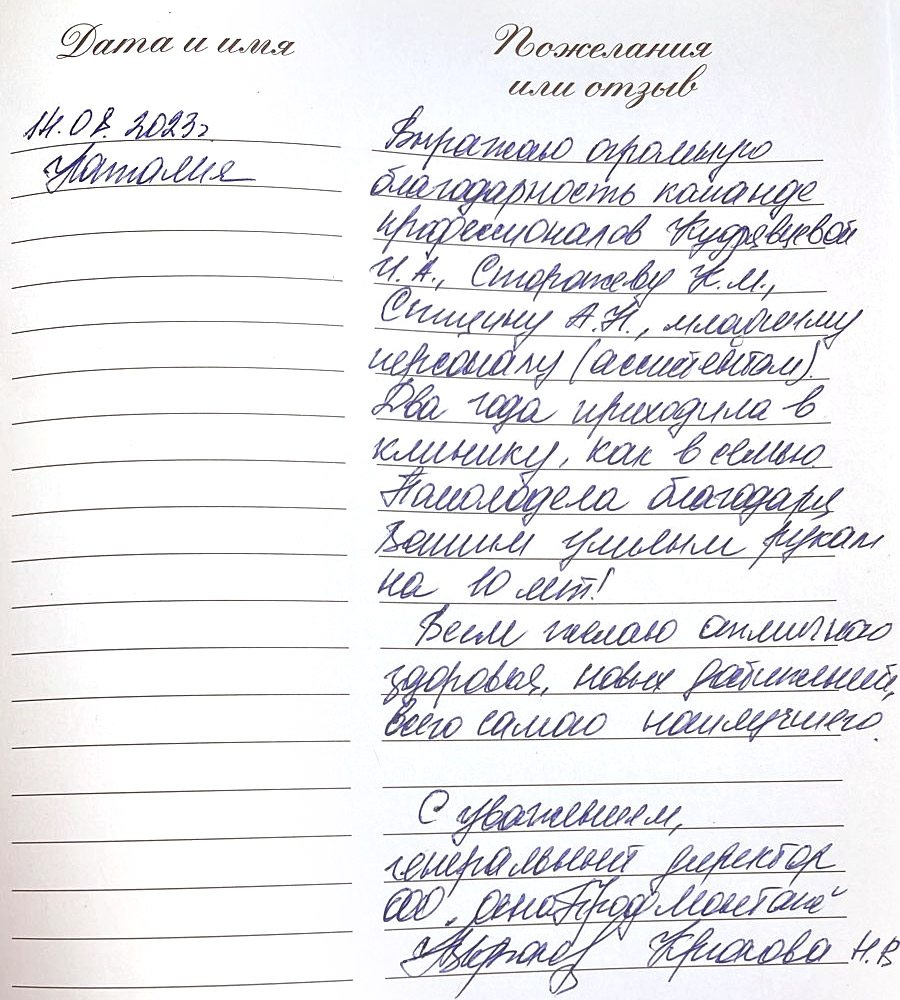 Дата и имя
Пожелания
или отзыв
14.08.2023г
Наталия
Выражаю огромную
благодарность команде
профессионалов Кудрявцевой
И.А., Сторожеву К.М.,
Спицину А.Н., младшему
персоналу (ассистентам).
Два года приходила в
клинику, как в семью.
Помолодела благодаря
Вашим умелым рукам
на 10 лет!
Всем желаю отличного
здоровья, новых достижений,
всего самого наилучшего.
С уважением,
генеральный директор
ООО "ОкнаПрофМонтаж"
Крюкова Н.В